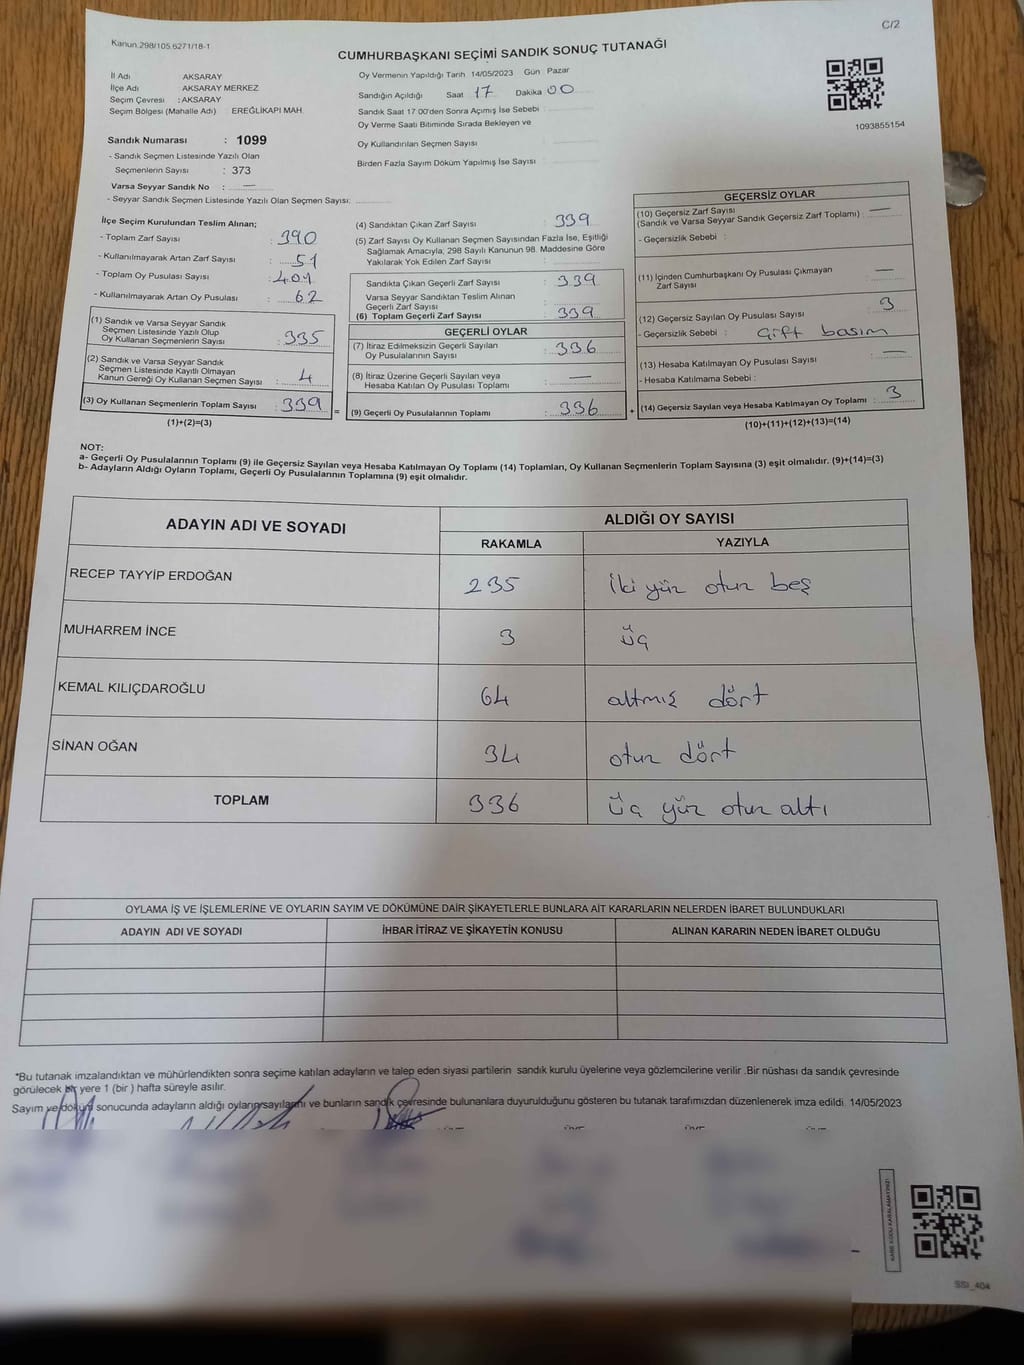 C/2
Kanun.298/105.6271/18-1
CUMHURBAŞKANI SEÇİMİ SANDIK SONUÇ TUTANAĞI
1093855154
İl Adı AKSARAY
İlçe Adı AKSARAY MERKEZ
Seçim Çevresi : AKSARAY
Seçim Bölgesi (Mahalle Adı) EREĞLİKAPI MAH.
Sandık Numarası : 1099
- Sandık Seçmen Listesinde Yazılı Olan
Seçmenlerin Sayısı : 373
Varsa Seyyar Sandık No : —
- Seyyar Sandık Seçmen Listesinde Yazılı Olan Seçmen Sayısı:
Oy Vermenin Yapıldığı Tarih 14/05/2023 Gün Pazar
Sandığın Açıldığı Saat 17 Dakika 00
Sandık Saat 17.00'den Sonra Açımış İse Sebebi
Oy Verme Saati Bitiminde Sırada Bekleyen ve
Oy Kullandırılan Seçmen Sayısı
Birden Fazla Sayım Döküm Yapılmış İse Sayısı :
İlçe Seçim Kurulundan Teslim Alınan;
- Toplam Zarf Sayısı : 390
- Kullanılmayarak Artan Zarf Sayısı : 51
- Toplam Oy Pusulası Sayısı : 401
- Kullanılmayarak Artan Oy Pusulası : 62
(1) Sandık ve Varsa Seyyar Sandık
Seçmen Listesinde Yazılı Olup
Oy Kullanan Seçmenlerin Sayısı : 335
(2) Sandık ve Varsa Seyyar Sandık
Seçmen Listesinde Kayıtlı Olmayan
Kanun Gereği Oy Kullanan Seçmen Sayısı : 4
(3) Oy Kullanan Seçmenlerin Toplam Sayısı : 339
(1)+(2)=(3)
(4) Sandıktan Çıkan Zarf Sayısı : 339
(5) Zarf Sayısı Oy Kullanan Seçmen Sayısından Fazla İse, Eşitliği
Sağlamak Amacıyla, 298 Sayılı Kanunun 98. Maddesine Göre
Yakılarak Yok Edilen Zarf Sayısı :
Sandıkta Çıkan Geçerli Zarf Sayısı : 339
Varsa Seyyar Sandıktan Teslim Alınan
Geçerli Zarf Sayısı :
(6) Toplam Geçerli Zarf Sayısı : 339
=
GEÇERLİ OYLAR
(7) İtiraz Edilmeksizin Geçerli Sayılan
Oy Pusulalarının Sayısı : 336
(8) İtiraz Üzerine Geçerli Sayılan veya
Hesaba Katılan Oy Pusulası Toplamı : —
(9) Geçerli Oy Pusulalarının Toplamı : 336
+
GEÇERSİZ OYLAR
(10) Geçersiz Zarf Sayısı
(Sandık ve Varsa Seyyar Sandık Geçersiz Zarf Toplamı) : —
- Geçersizlik Sebebi :
(11) İçinden Cumhurbaşkanı Oy Pusulası Çıkmayan
Zarf Sayısı : —
(12) Geçersiz Sayılan Oy Pusulası Sayısı : 3
- Geçersizlik Sebebi : Çift basım
(13) Hesaba Katılmayan Oy Pusulası Sayısı : —
- Hesaba Katılmama Sebebi :
(14) Geçersiz Sayılan veya Hesaba Katılmayan Oy Toplamı : 3
(10)+(11)+(12)+(13)=(14)
NOT:
a- Geçerli Oy Pusulalarının Toplamı (9) ile Geçersiz Sayılan veya Hesaba Katılmayan Oy Toplamı (14) Toplamları, Oy Kullanan Seçmenlerin Toplam Sayısına (3) eşit olmalıdır. (9)+(14)=(3)
b- Adayların Aldığı Oyların Toplamı, Geçerli Oy Pusulalarının Toplamına (9) eşit olmalıdır.
ADAYIN ADI VE SOYADI ALDIĞI OY SAYISI
RAKAMLA YAZIYLA
RECEP TAYYİP ERDOĞAN 235 iki yüz otuz beş
MUHARREM İNCE 3 üç
KEMAL KILIÇDAROĞLU 64 altmış dört
SİNAN OĞAN 34 otuz dört
TOPLAM 336 üç yüz otuz altı
OYLAMA İŞ VE İŞLEMLERİNE VE OYLARIN SAYIM VE DÖKÜMÜNE DAİR ŞİKAYETLERLE BUNLARA AİT KARARLARIN NELERDEN İBARET BULUNDUKLARI
ADAYIN ADI VE SOYADI İHBAR İTİRAZ VE ŞİKAYETİN KONUSU ALINAN KARARIN NEDEN İBARET OLDUĞU
*Bu tutanak imzalandıktan ve mühürlendikten sonra seçime katılan adayların ve talep eden siyasi partilerin sandık kurulu üyelerine veya gözlemcilerine verilir .Bir nüshası da sandık çevresinde
görülecek bir yere 1 (bir ) hafta süreyle asılır.
Sayım ve döküm sonucunda adayların aldığı oyların sayılarını ve bunların sandık çevresinde bulunanlara duyurulduğunu gösteren bu tutanak tarafımızdan düzenlenerek imza edildi. 14/05/2023
KARE KODU KARALAMAYINIZ!
SSI_404